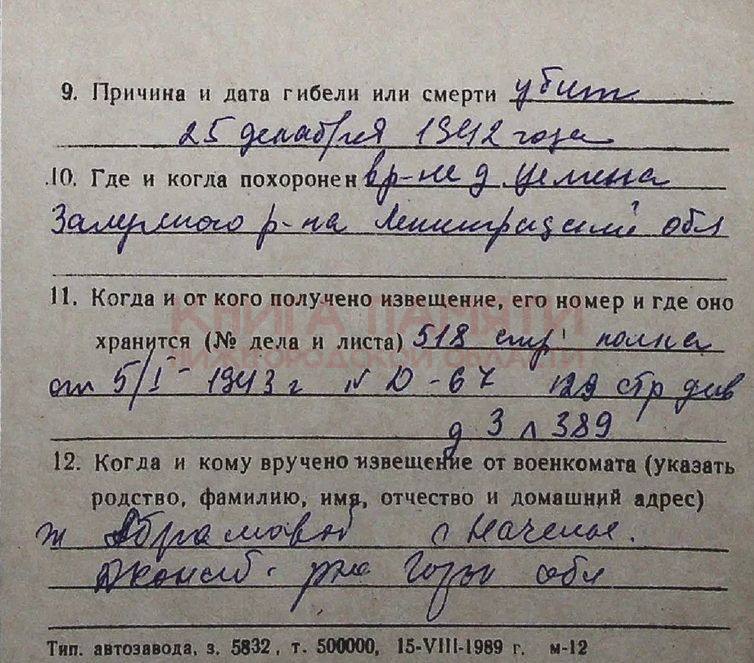 9. Причина и дата гибели или смерти убит
25 декабря 1942 года
10. Где и когда похоронен в р-не д.
р-на Ленинградской обл
КНИГА ПАМЯТИ
НИЖЕГОРОДСКОЙ ОБЛАСТИ
11. Когда и от кого получено извещение, его номер и где оно
хранится (№ дела и листа) 518 стр полка
от 5/I - 1943 г N D-67 129 стр див
д 3 л 389
12. Когда и кому вручено извещение от военкомата (указать
родство, фамилию, имя, отчество и домашний адрес)
ж Абрамовой
р-на обл
Тип. автозавода, з. 5832, т. 500000, 15-VIII-1989 г. м-12